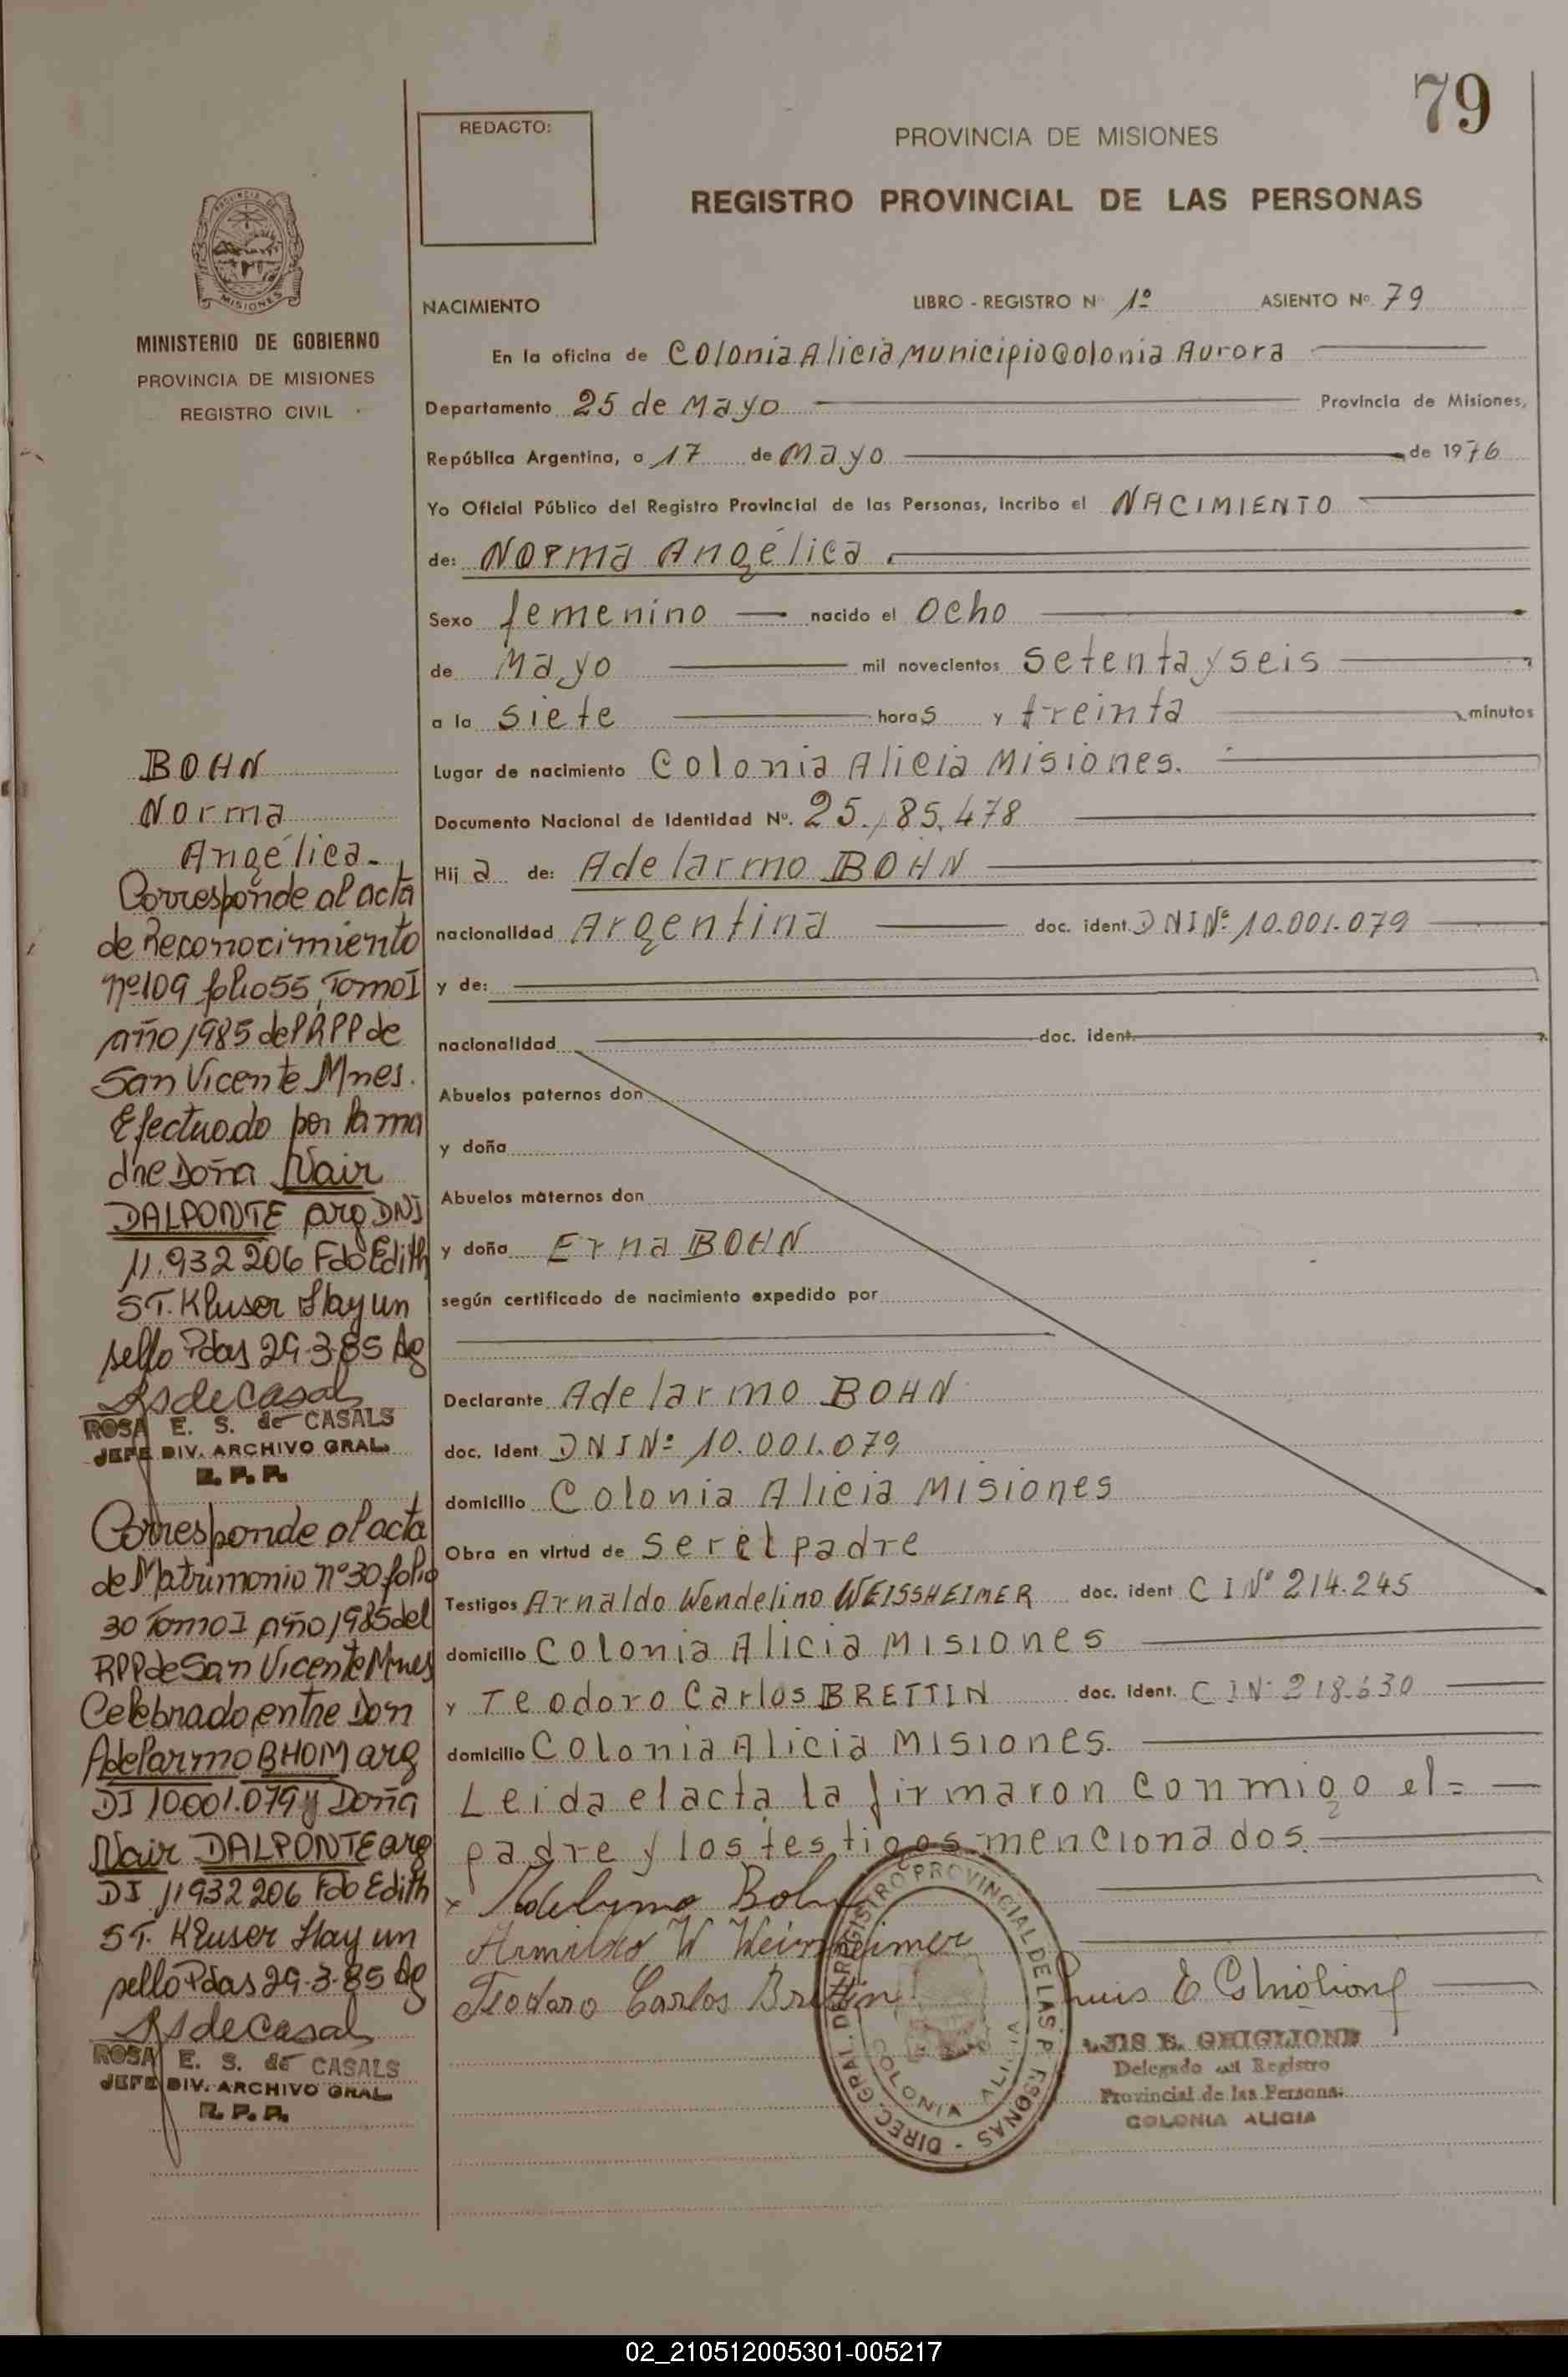 79
REDACTO:
PROVINCIA DE MISIONES
REGISTRO PROVINCIAL DE LAS PERSONAS
PROVINCIA DE
MISIONES
MINISTERIO DE GOBIERNO
PROVINCIA DE MISIONES
REGISTRO CIVIL
NACIMIENTO LIBRO - REGISTRO Nº 1º ASIENTO Nº. 79
En la oficina de Colonia Alicia Municipio Colonia Aurora
Departamento 25 de Mayo Provincia de Misiones,
República Argentina, a 17 de Mayo de 1976
Yo Oficial Público del Registro Provincial de las Personas, incribo el NACIMIENTO
de: Norma Angélica
Sexo femenino nacido el ocho
de Mayo mil novecientos setenta y seis
a la siete horas y treinta minutos
Lugar de nacimiento Colonia Alicia Misiones.
Documento Nacional de Identidad Nº. 25.185.478
Hija de: Adelarmo BOHN
nacionalidad Argentina doc. ident. DNI Nº 10.001.079
y de:
nacionalidad doc. ident.
Abuelos paternos don
y doña
Abuelos maternos don
y doña Erna BOHN
según certificado de nacimiento expedido por
Declarante Adelarmo BOHN
doc. Ident DNI Nº 10.001.079
domicilio Colonia Alicia Misiones
Obra en virtud de ser el padre
Testigos Arnaldo Wendelino WEISSHEIMER doc. ident C I Nº 214.245
domicilio Colonia Alicia Misiones
y Teodoro Carlos BRETTIN doc. ident. C I Nº 218.630
domicilio Colonia Alicia Misiones.
Leida el acta la firmaron conmigo el=
padre y los testigos mencionados.
x Adelarmo Bohn
Arnaldo W Weissheimer
Teodoro Carlos Brettin Luis E Ghiglione
LUIS E. GHIGLIONE
Delegado del Registro
Provincial de las Personas
COLONIA ALICIA
DIREC. GRAL. DEL REGISTRO PROVINCIAL DE LAS PERSONAS -
COLONIA ALICIA
BOHN
Norma
Angélica-
Corresponde al acta
de Reconocimiento
nº 109 folio 55, Tomo I
año 1985 del RPP de
San Vicente Mnes.
Efectuado por la ma
dre Doña Nair
DALPONTE arg DNI
11.932 206 Fdo Edith
ST. Kluser Hay un
sello Pdas 29-3-85 Ag
RS de Casals
ROSA E. S. de CASALS
JEFE DIV. ARCHIVO GRAL.
R. P. P.
Corresponde al acta
de Matrimonio nº 30 folio
30 Tomo I año 1985 del
RPP de San Vicente Mnes
Celebrado entre Don
Adelarmo BHOM arg
DI 10001.079 y Doña
Nair DALPONTE arg
DI 11932 206 Fdo Edith
ST. Kluser Hay un
sello Pdas 29-3-85 Ag
RS de Casals
ROSA E. S. de CASALS
JEFE DIV. ARCHIVO GRAL.
R. P. P.
02_210512005301-005217